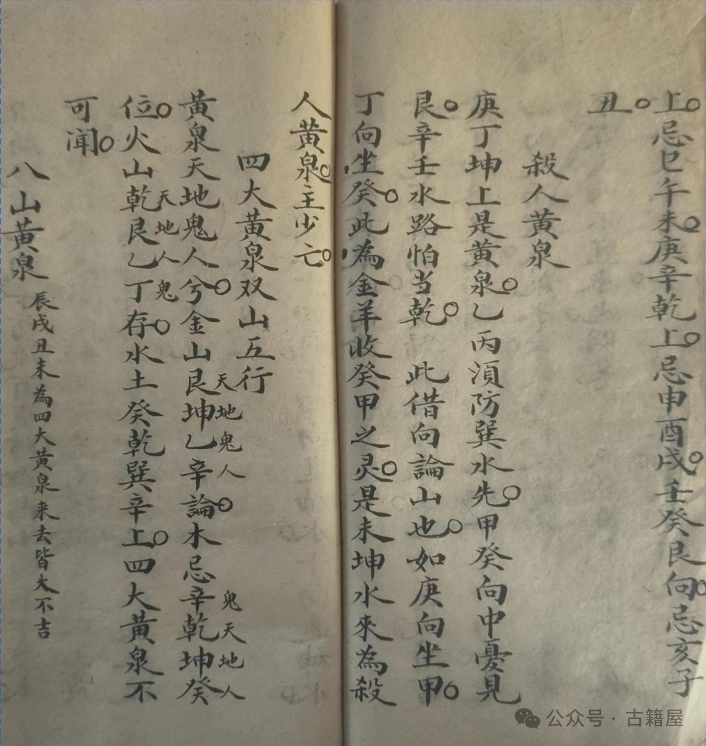 上○忌巳午未○庚辛乾上○忌申酉戌○壬癸艮向○忌亥子
丑○
殺人黃泉
庚丁坤上是黃泉○乙丙湏防巽水先○甲癸向中憂見
艮○辛壬水路怕当乾○此借向論山也○如庚向坐甲○
丁向坐癸○此為金羊收癸甲之灵○是未坤水來為殺
人黃泉○主少亡○
四大黃泉双山五行
黃泉天地鬼人兮○金山艮坤乙辛論○木忌辛乾坤癸
天地鬼人 鬼天地人
位○火山乾艮乙丁存○水土癸乾巽辛上○四大黃泉不
天地人鬼
可闻○
八山黃泉 辰戌丑未為四大黃泉來去皆大不吉
公众号·古籍屋